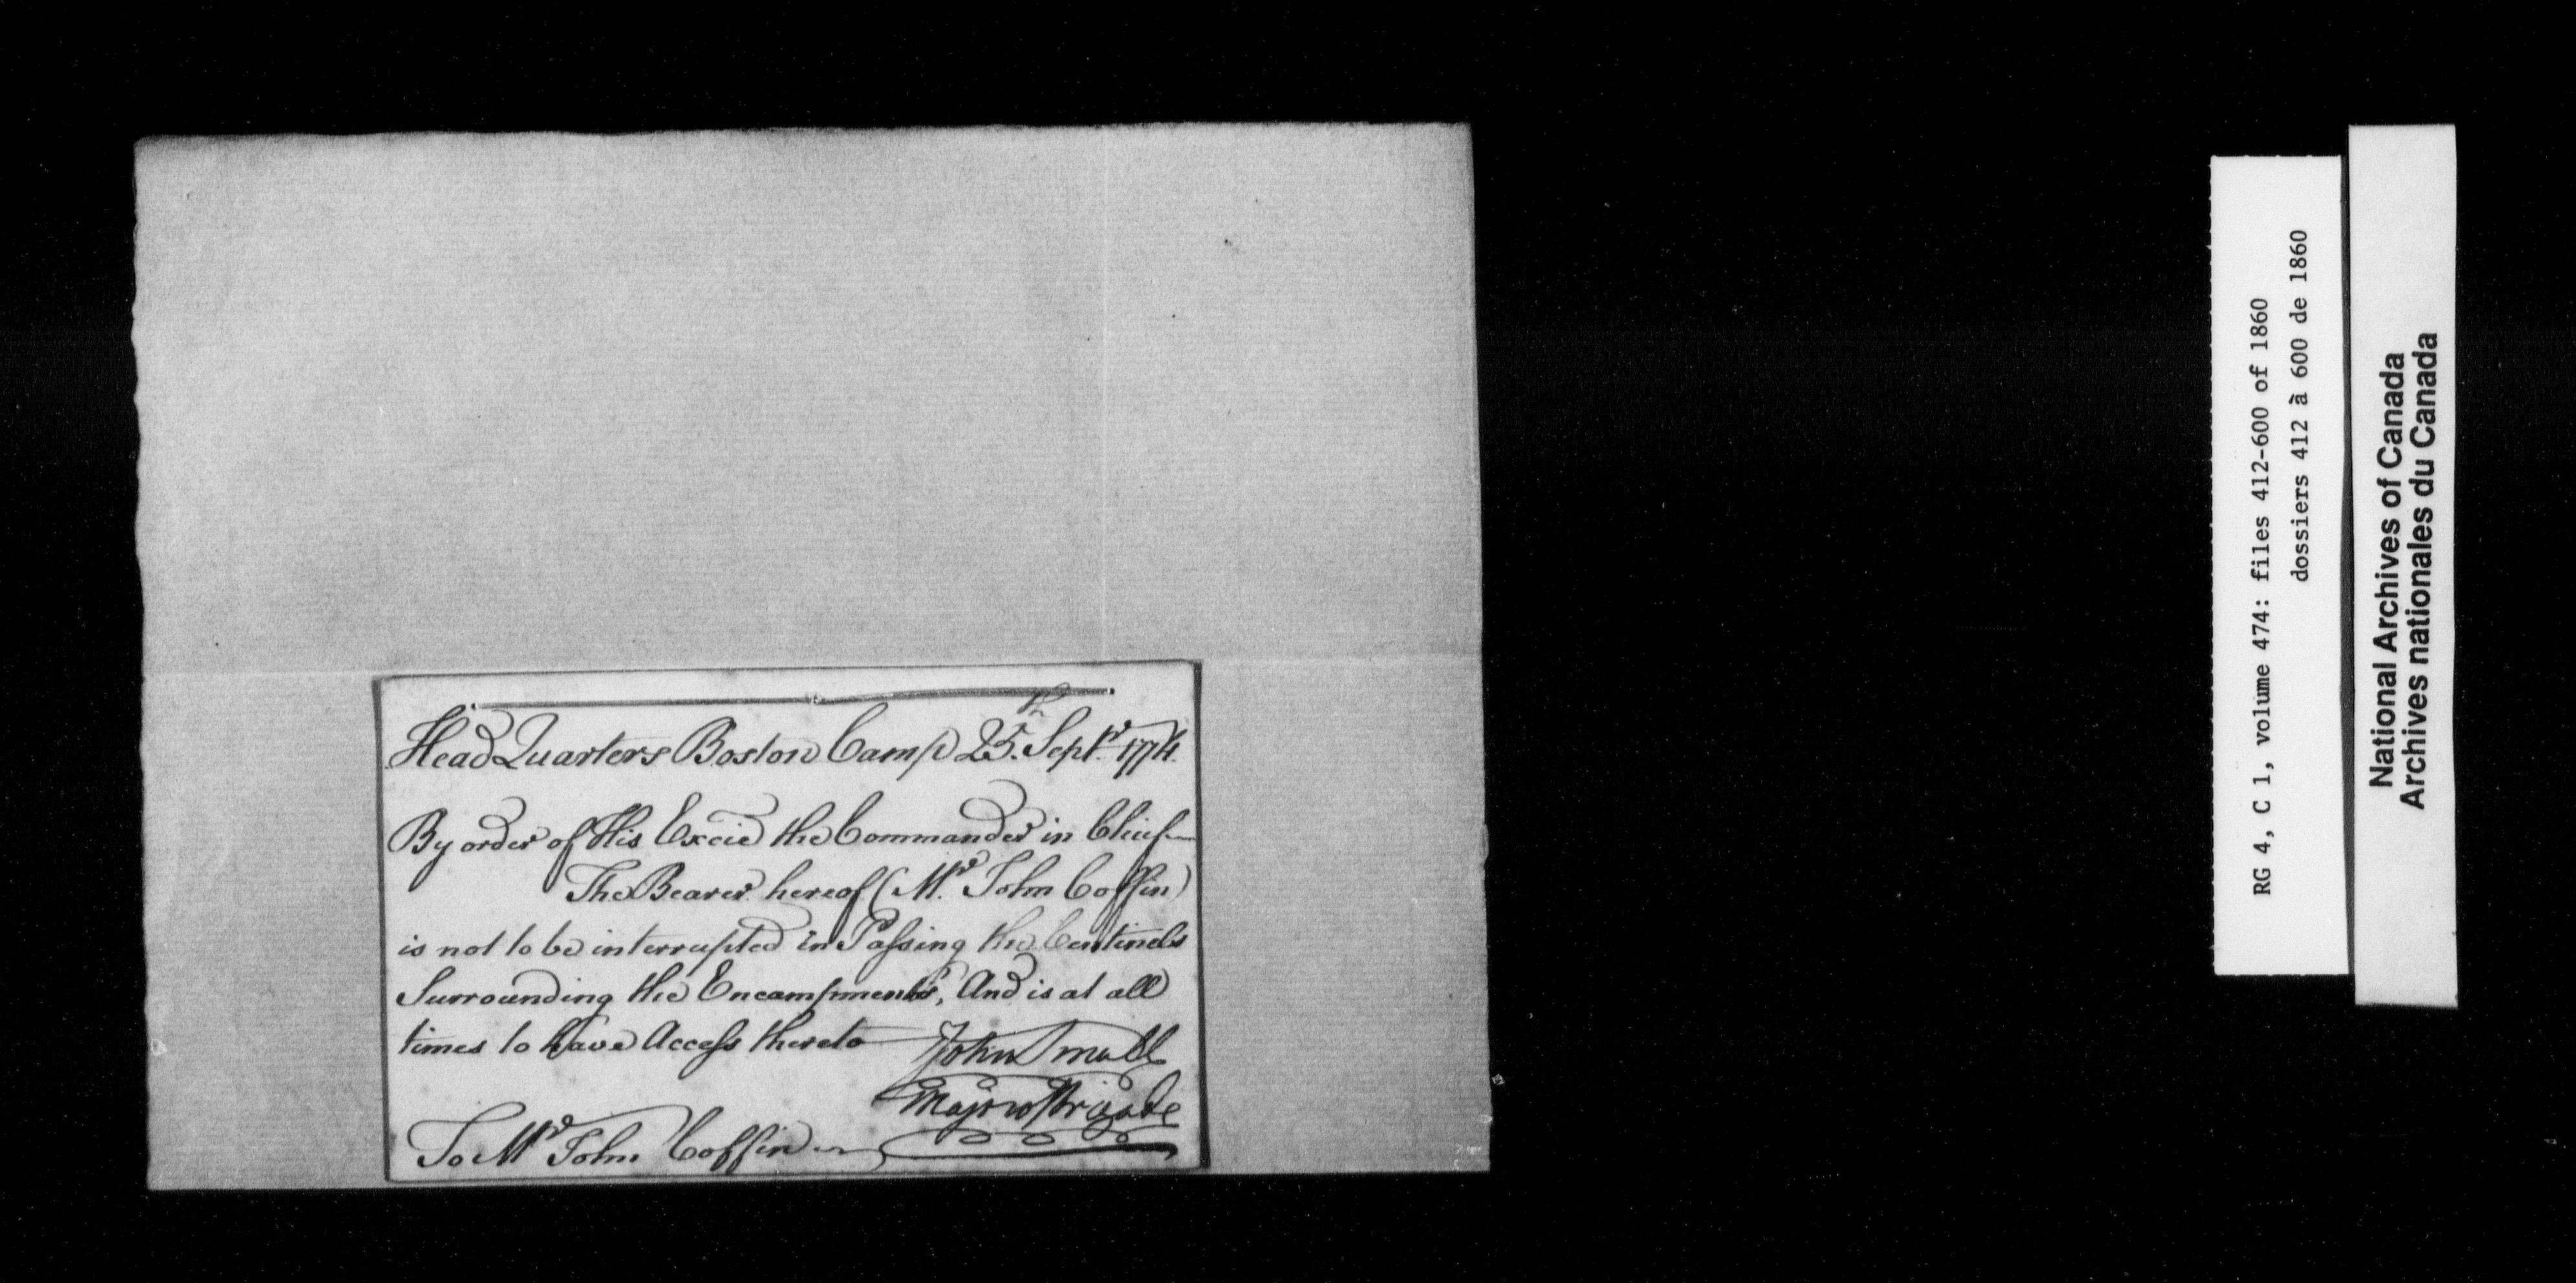 Head Quarters Boston Camp 25th. Septr. 1774.
By order of His Excie the Commander in Chief
The Bearer hereof (Mr. John Coffin)
is not to be interrupted in Passing the Centinels
Surrounding the Encampments, And is at all
times to have Access thereto
John Small
Major of Brigade
To Mr John Coffin
RG 4, C 1, volume 474: files 412-600 of 1860
dossiers 412 à 600 de 1860
National Archives of Canada
Archives nationales du Canada